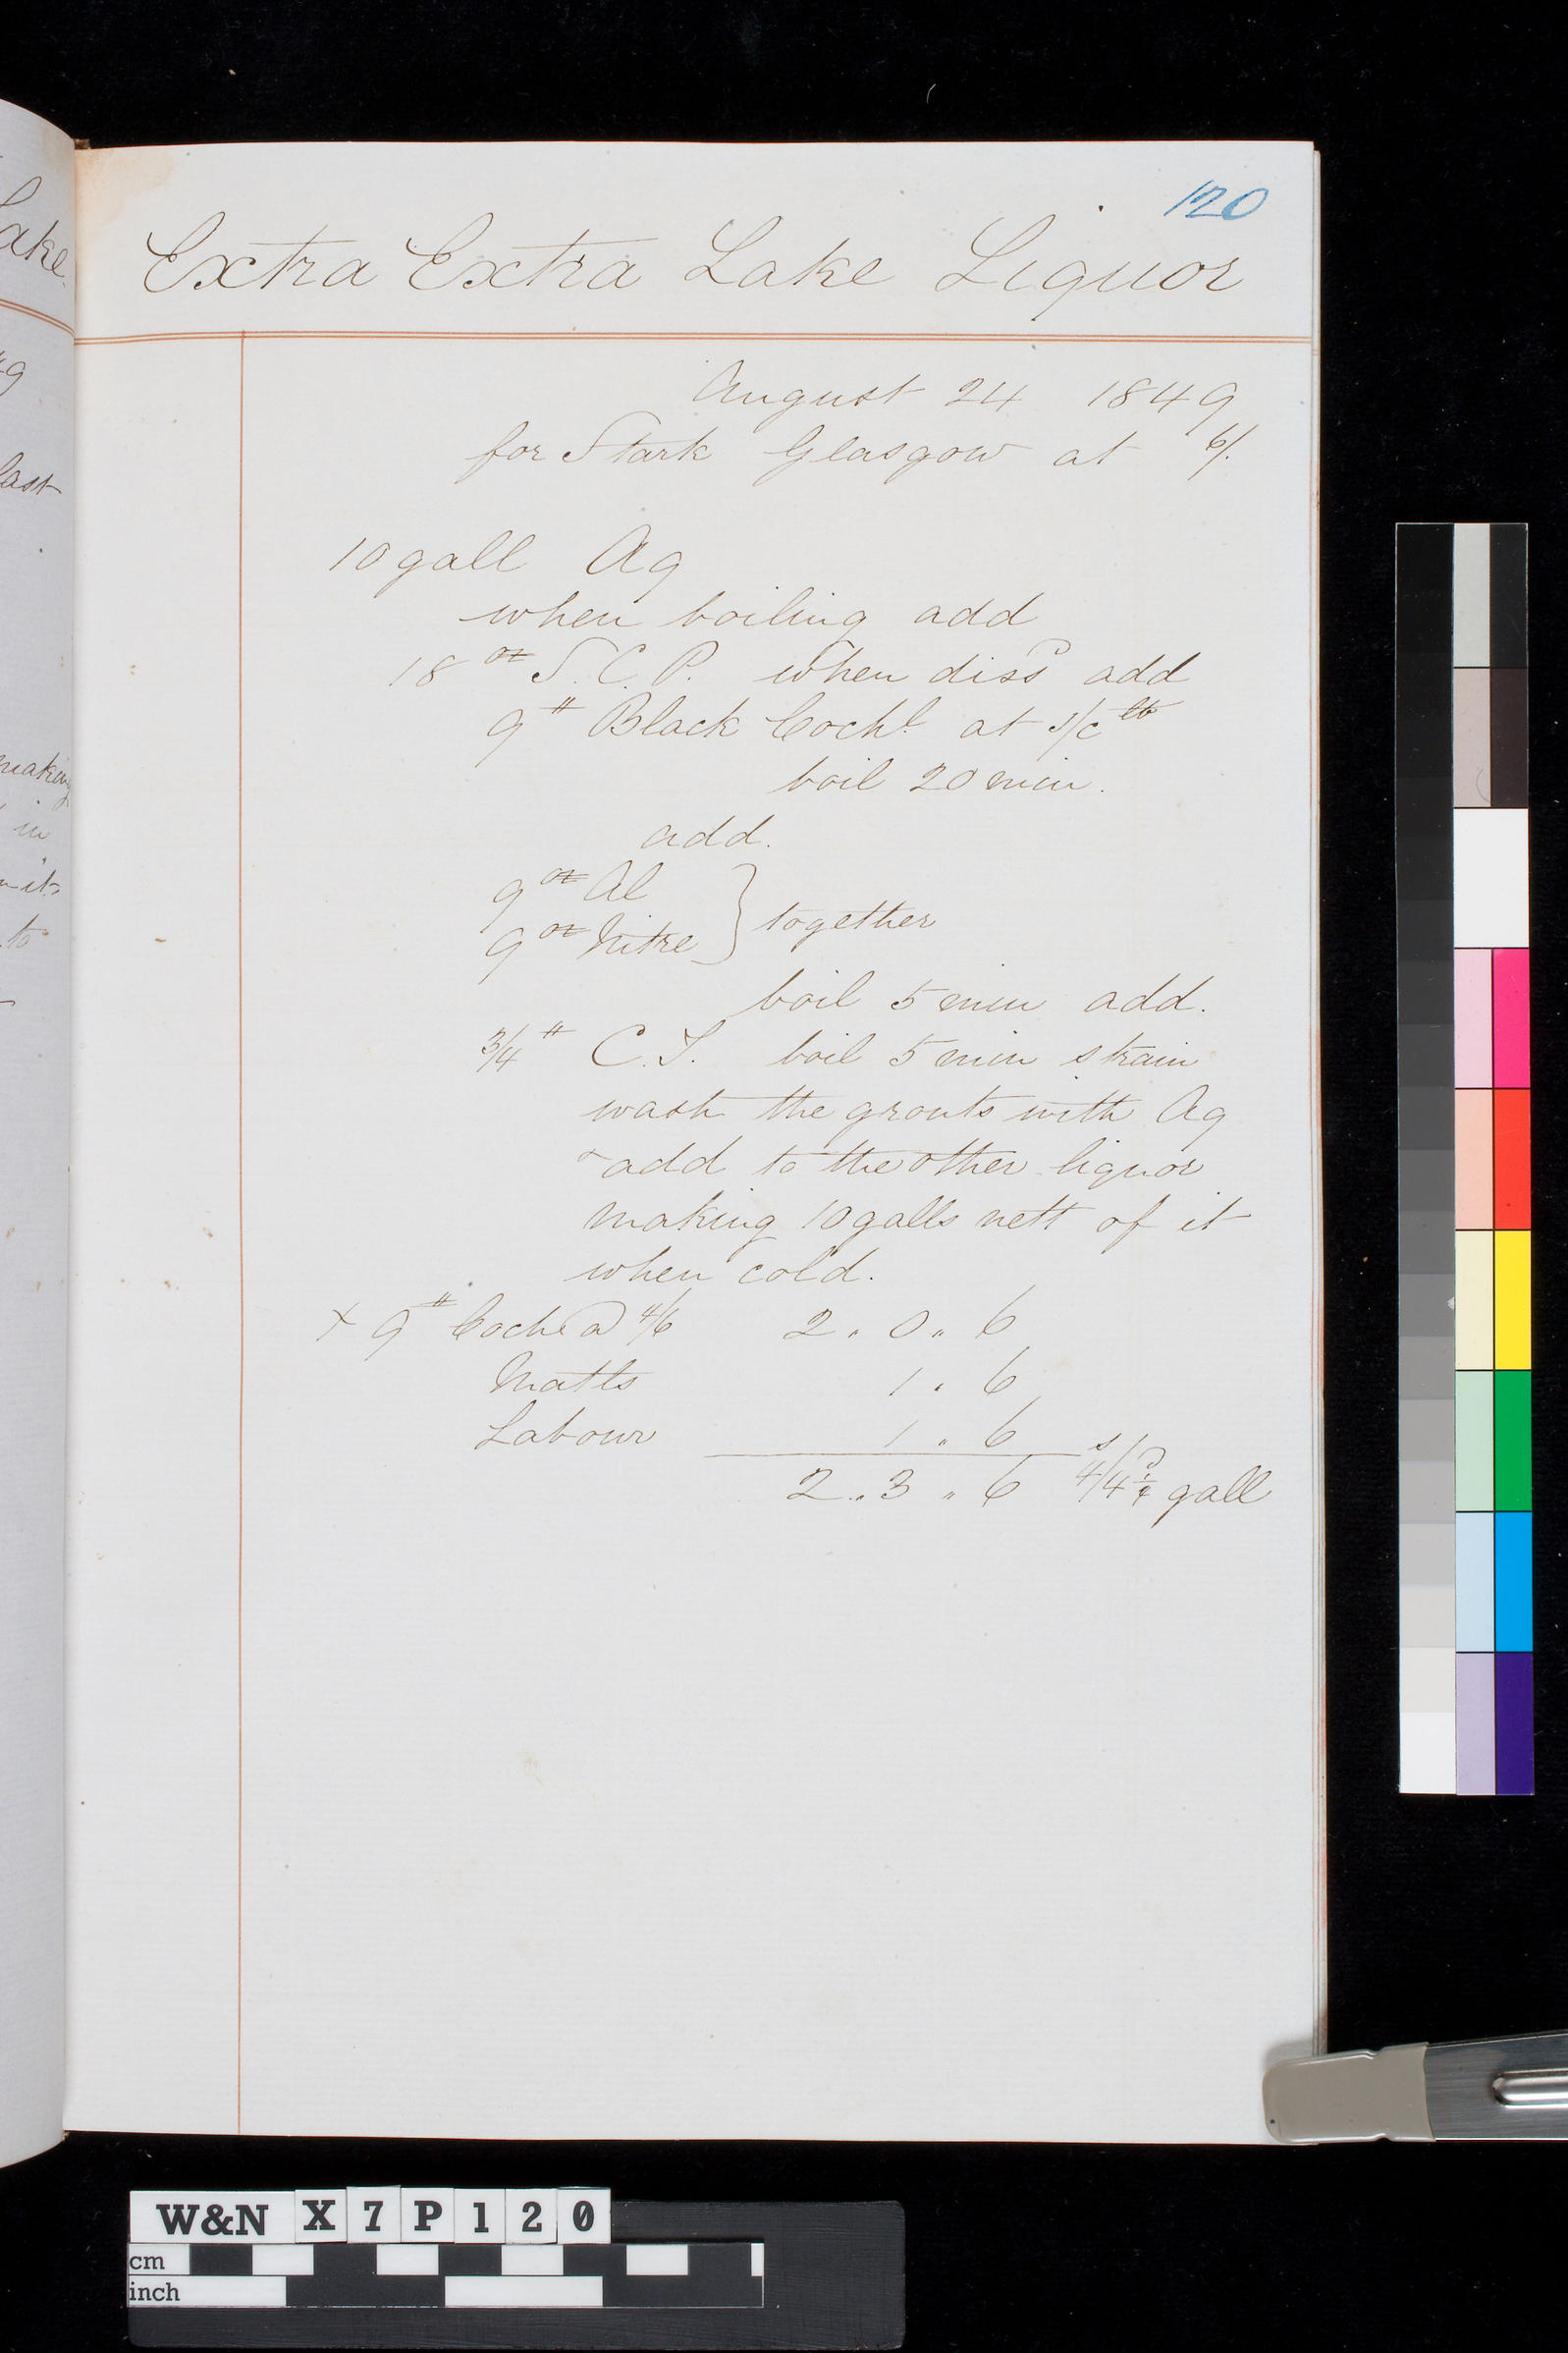 120
Extra Extra Lake Liquor
August 24 1849
for Stark Glasgow at 6/.
10 gall Aq
when boiling add
18 oz S.C.P. when diss^d add
9 # Black Coch^l at s/c lb
boil 20 min.
add.
9 oz Al
9 oz Nitre } together
boil 5 min add.
3/4 # C.T. boil 5 min strain
wash the grouts with Aq
& add to the other liquor
making 10 galls nett of it
when cold.
x 9 # Coch @ 4/6 2 " 0 " 6
Matls 1 " 6
Labour 1 " 6
2 " 3 " 6 4/4 1/4 gall
Lake.
49
last
making
in
it
to
W&N X 7 P 1 2 0
cm
inch